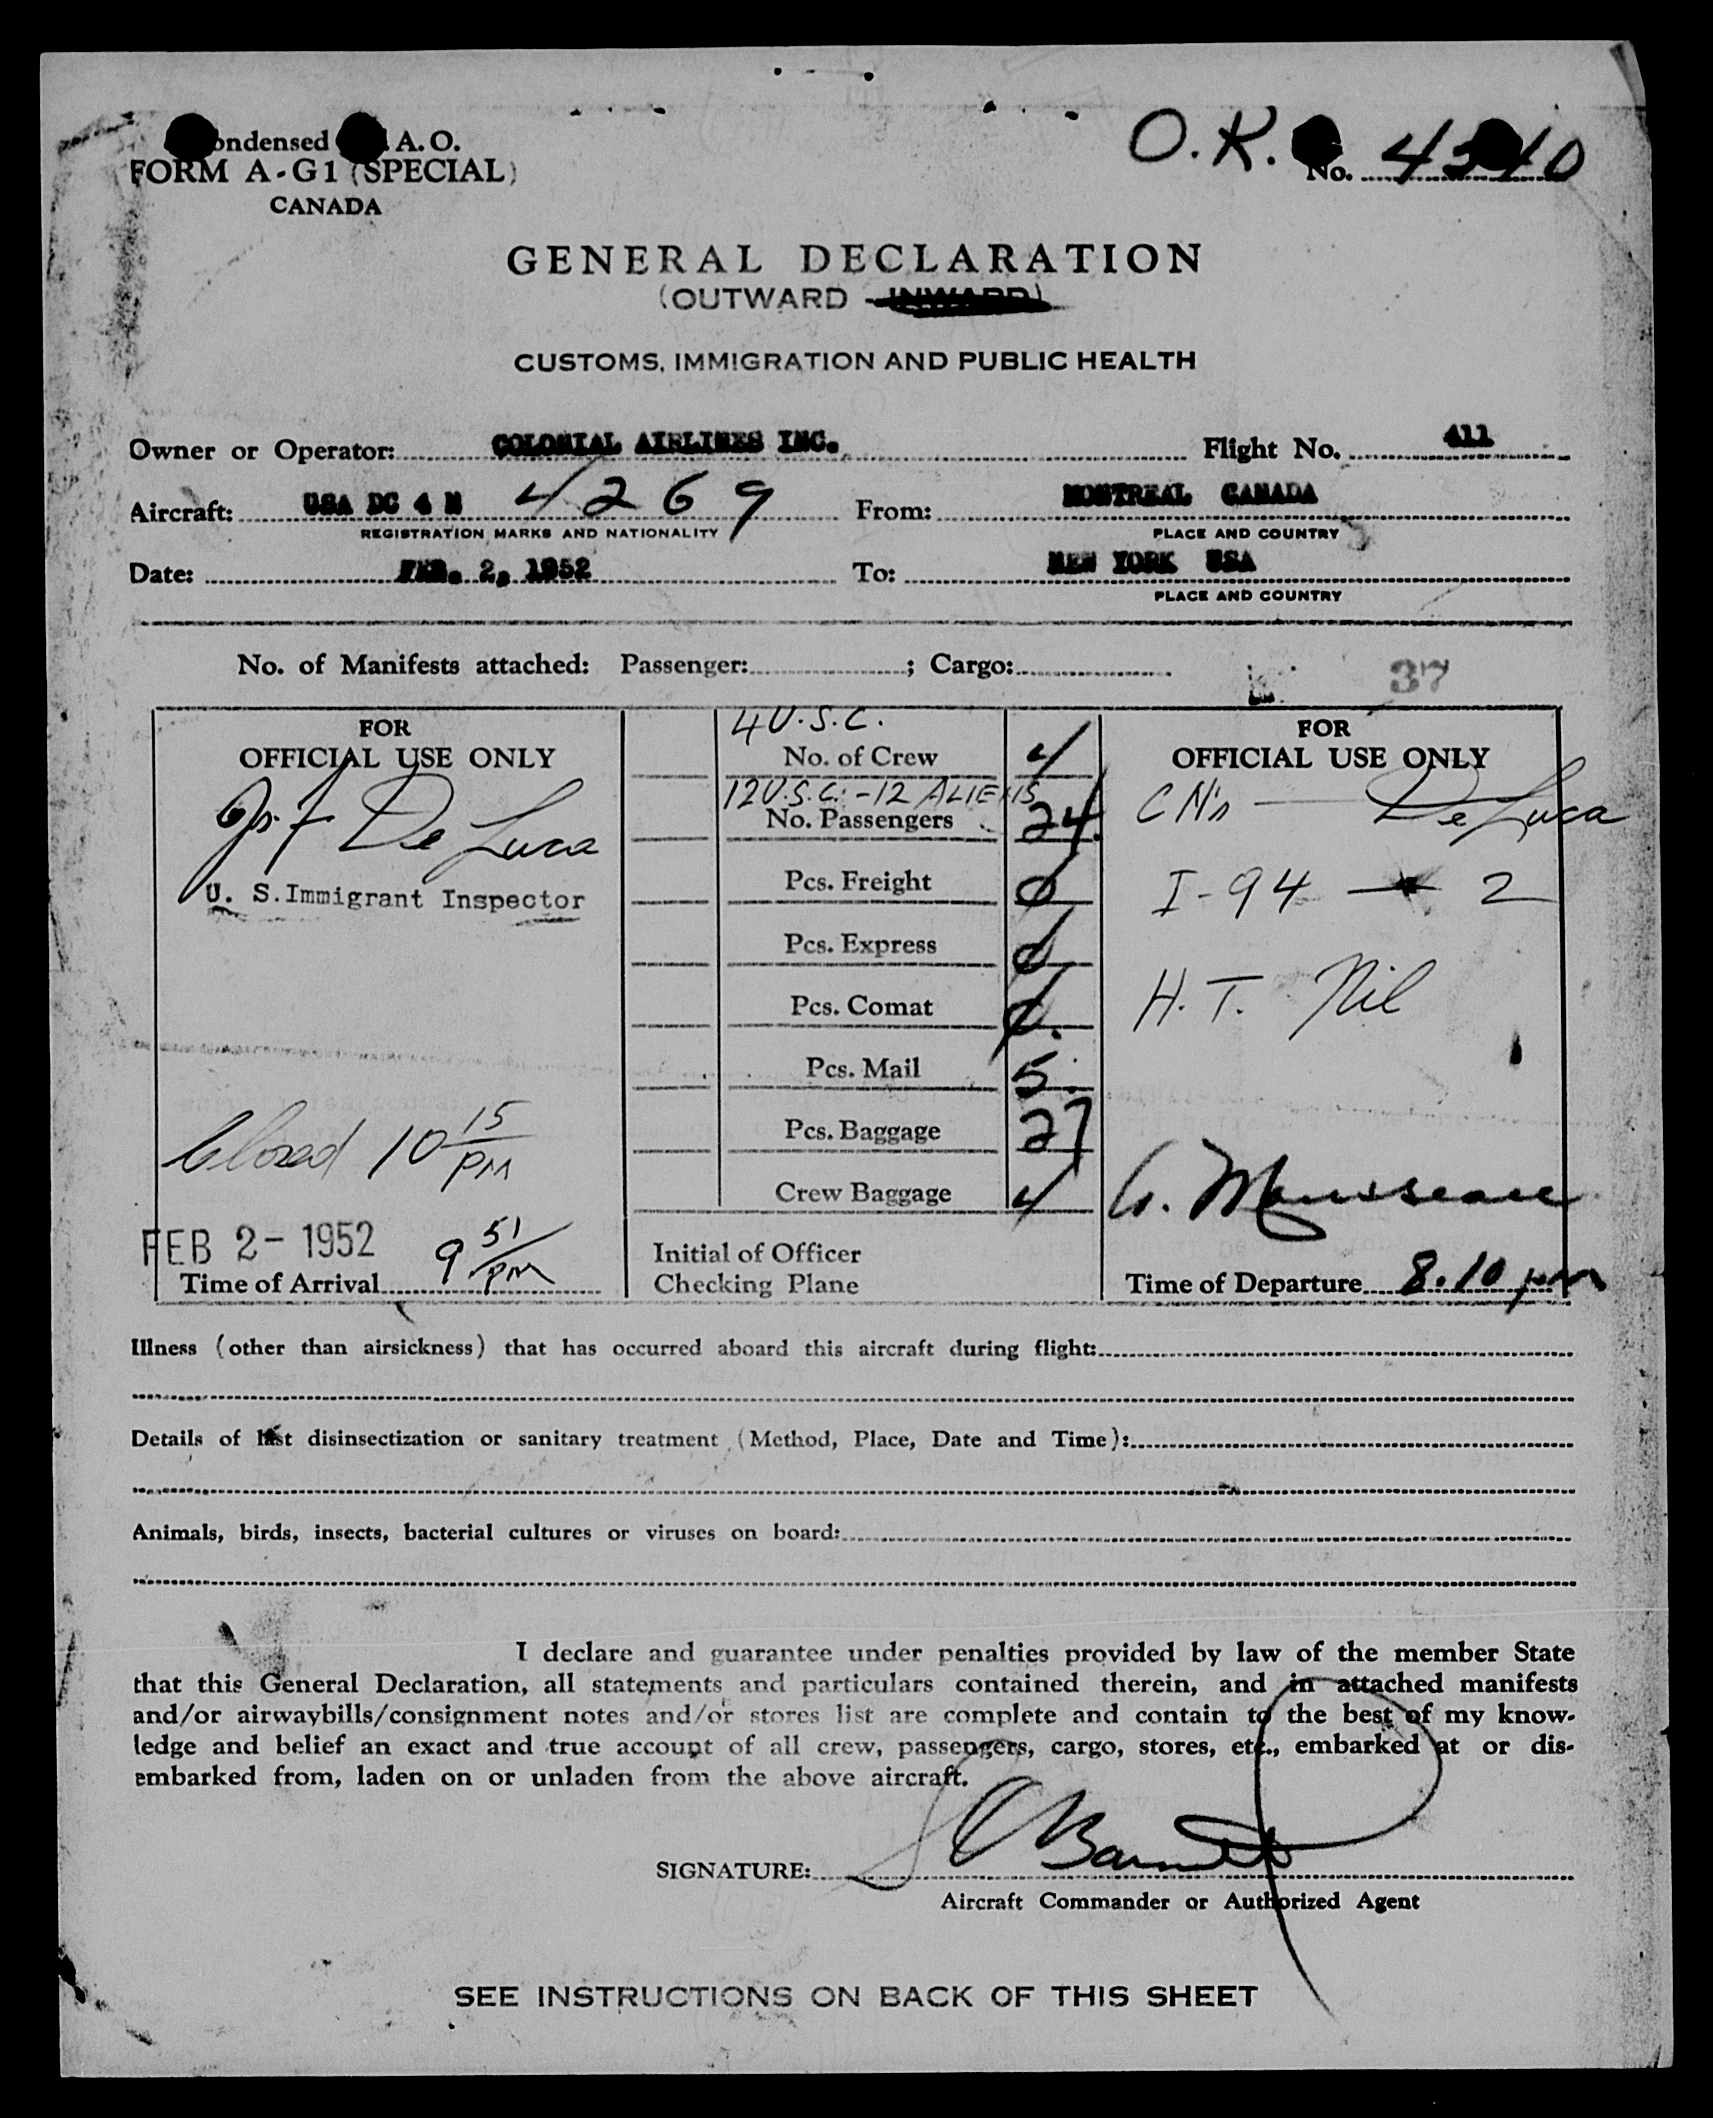 ondensed A.O.
FORM A-G1 (SPECIAL)
CANADA
O.K. No.
GENERAL DECLARATION
(OUTWARD - INWARD)
CUSTOMS, IMMIGRATION AND PUBLIC HEALTH
Owner or Operator: COLONIAL AIRLINES INC. Flight No. 411
Aircraft: USA DC 4 N 4269 From: MONTREAL CANADA
REGISTRATION MARKS AND NATIONALITY PLACE AND COUNTRY
Date: FEB. 2, 1952 To: NEW YORK USA
PLACE AND COUNTRY
No. of Manifests attached: Passenger: ; Cargo:
37
FOR
OFFICIAL USE ONLY
Jos. F De Luca
U. S.Immigrant Inspector
Closed 10 15 PM
FEB 2- 1952
9 51 PM
Time of Arrival
4 U.S.C.
No. of Crew 4
12 U.S.C. - 12 ALIENS
No. Passengers 24
Pcs. Freight 0
Pcs. Express 0
Pcs. Comat 0
Pcs. Mail 5
Pcs. Baggage 27
Crew Baggage 4
Initial of Officer
Checking Plane
FOR
OFFICIAL USE ONLY
CN's — De Luca
I-94 — 2
H.T. Nil
Time of Departure 8.10 pm
Illness (other than airsickness) that has occurred aboard this aircraft during flight:
Details of last disinsectization or sanitary treatment (Method, Place, Date and Time):
Animals, birds, insects, bacterial cultures or viruses on board:
I declare and guarantee under penalties provided by law of the member State
that this General Declaration, all statements and particulars contained therein, and in attached manifests
and/or airwaybills/consignment notes and/or stores list are complete and contain to the best of my know-
ledge and belief an exact and true account of all crew, passengers, cargo, stores, etc., embarked at or dis-
embarked from, laden on or unladen from the above aircraft.
SIGNATURE:
Aircraft Commander or Authorized Agent
SEE INSTRUCTIONS ON BACK OF THIS SHEET